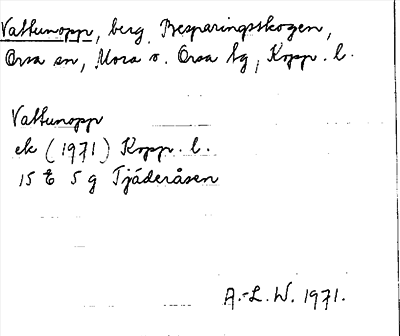 Vattunopp, berg Besparingsskogen,
Orsa sn, Mora o. Orsa tg, Kopp. l.
Vattunopp
ek (1971) Kopp. l.
15 E 5 g Tjäderåsen
A.-L. W. 1971.